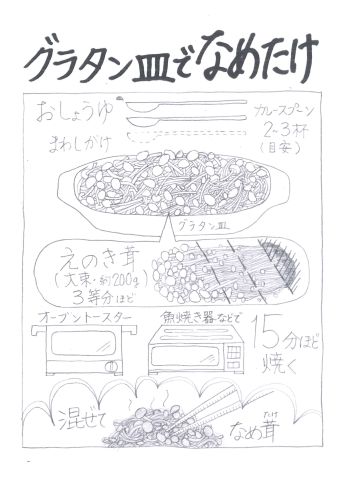 グラタン皿でなめたけ
おしょうゆ
まわしがけ
カレースプーン
2~3杯
(目安)
グラタン皿
えのき茸
(大束・約200g)
3等分ほど
オーブントースター
魚焼き器などで
15分ほど
焼く
混ぜて
なめ茸
たけ